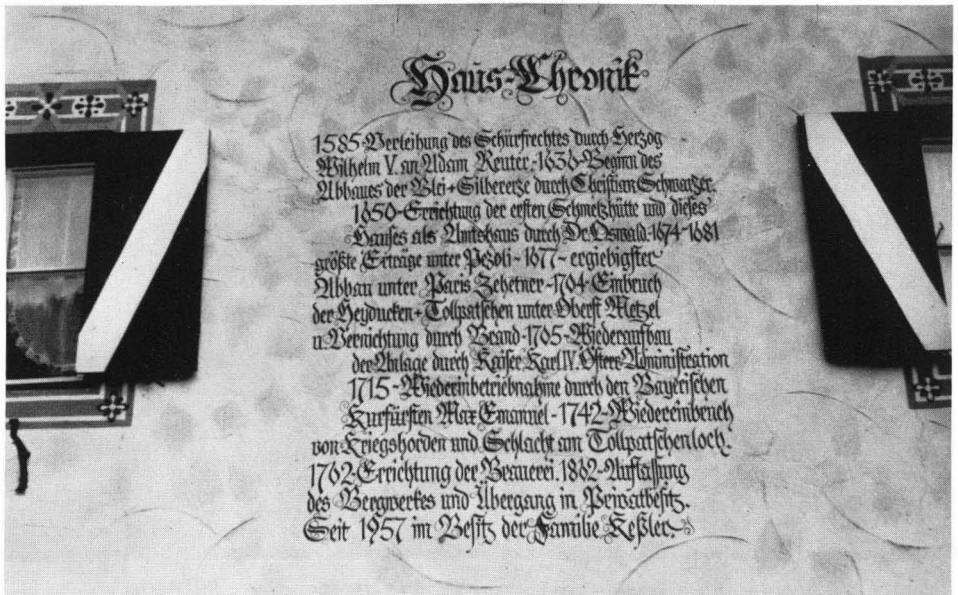 Haus-Chronik
1585-Verleihung des Schürfrechtes durch Herzog
Wilhelm V. an Adam Reuter.-1636-Beginn des
Abbaues der Blei+Silbererze durch Christian Schwarzer.
1650-Errichtung der ersten Schmelzhütte und dieses
Hauses als Amtshaus durch Dr. Oswald.1674-1681
größte Erträge unter Pezoli-1677-ergiebigster
Abbau unter Paris Zehetner-1704-Einbruch
der Heyducken+Tollpatschen unter Oberst Metzel
u. Vernichtung durch Brand-1705-Wiederaufbau
der Anlage durch Kaiser Karl IV. Österr. Administration
1715-Wiederinbetriebnahme durch den Bayerischen
Kurfürsten Max Emanuel-1742-Wiedereinbruch
von Kriegshorden und Schlacht am Tollpatschenloch.
1762-Errichtung der Brauerei. 1862-Auflassung
des Bergwerkes und Übergang in Privatbesitz.
Seit 1957 im Besitz der Familie Keßler.